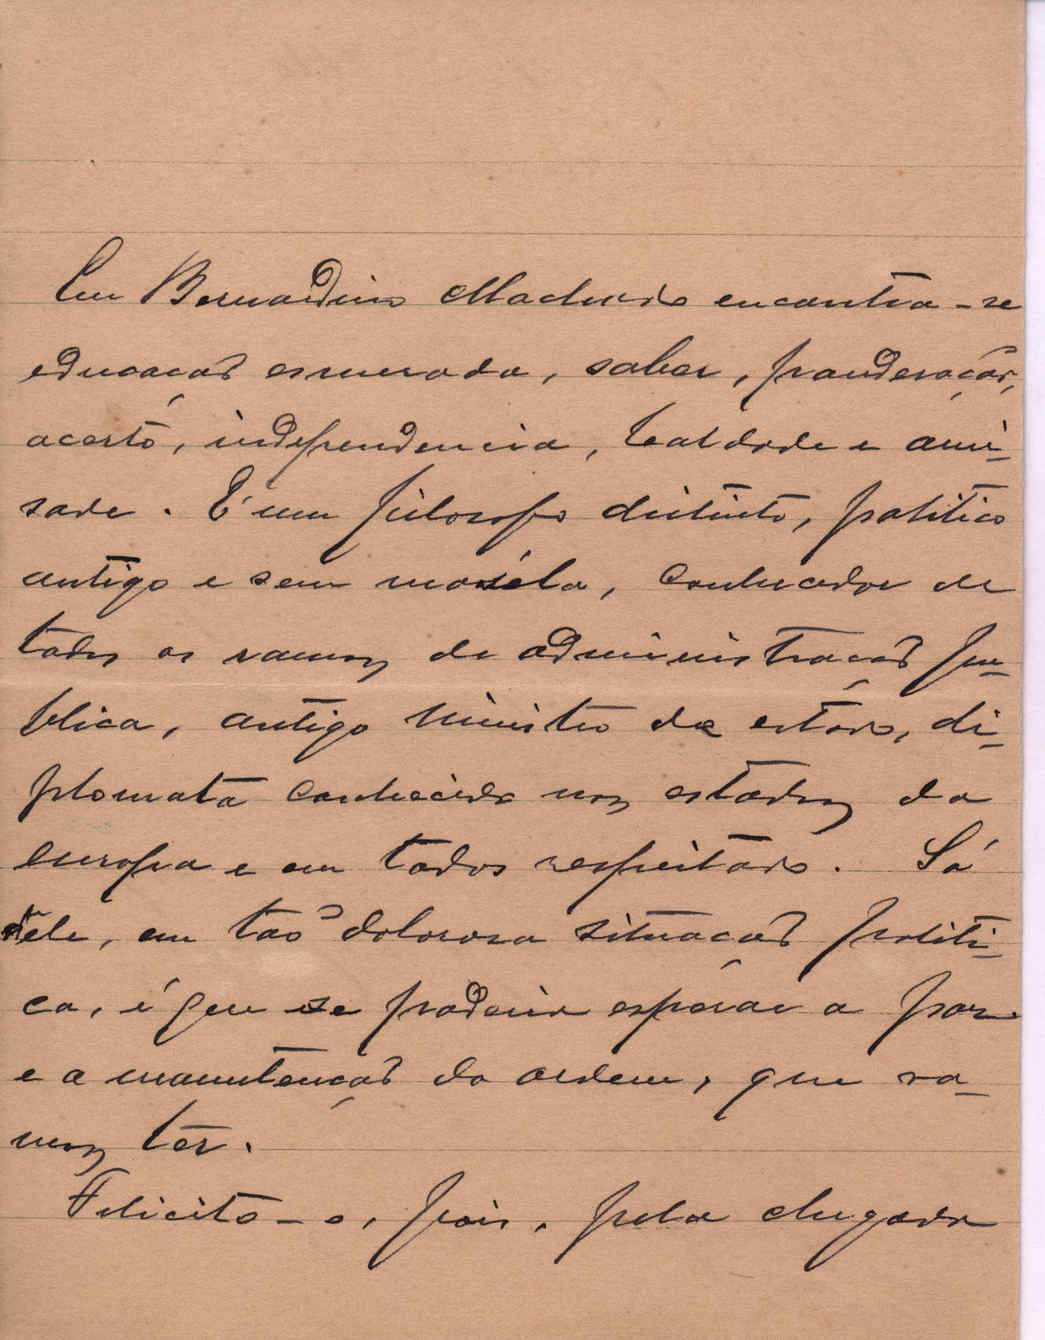 Em Bernardino Machado encontra-se
educação esmerada, saber, ponderação,
acerto, independencia, lealdade e ami-
sade. É um filosofo distinto, politico
antigo e sem macula, conhecedor de
todos os ramos de administração pu-
blica, antigo ministro de estado, di-
plomata conhecido nos estados da
europa e em todos respeitado. Só
dele, em tão dolorosa situação politi-
ca, é que se poderia esperar a paz
e a manutenção da ordem, que va-
mos ter.
Felicito-o, pois, pela chegada